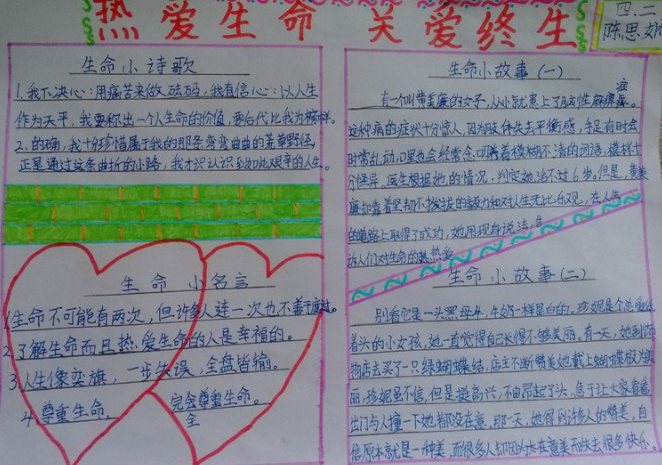 热爱生命 关爱终生
四.二
陈思
生命小诗歌
1.我下决心:用痛苦来做砝码,我有信心:以人生
作为天平,我要称出一个人生命的价值,要后代比我为榜样。
2.的确,我十分珍惜属于我的那条弯弯曲曲的荒草野径,
正是通过这条曲折的小路,我才认识到如此艰辛的人生。
生命小名言
1.生命不可能有两次,但许多人连一次也不善于度过。
2.了解生命而且热爱生命的人是幸福的。
3.人生像奕旗,一步失误,全盘皆输。
4.尊重生命、完全尊重生命。
生命小故事(一)
有一个叫黄美廉的女子,从小就患上了脑性麻痹症。
这种病的症状十分惊人,因为肢体失去平衡感,手足有时会
时常乱动,口里也会经常念叨着模糊不清的词语,模样十
分怪异。医生根据她的情况,判定她活不过6岁。但是,黄美
廉却靠着坚韧不拔的毅力和对人生无比乐观,在人生
的道路上取得了成功,她用现身说法,告
诉人们对生命的热爱
生命小故事(二)
别看它是一头黑母牛,牛奶一样是白的。珍妮是个总爱低
着头的小女孩,她一直觉得自己长得不够美丽,有一天,她到饰
物店去买了一只绿蝴蝶结,店主不断赞美她戴上蝴蝶极为美
丽,珍妮虽不信,但是挺高兴,不由昂起了头,急于让大家看看,
出门与人撞一下她都没在意,那一天,她得到许多人的赞美,自
信原本就是一种美,而很多人却因为太在意美而失去很多快乐。